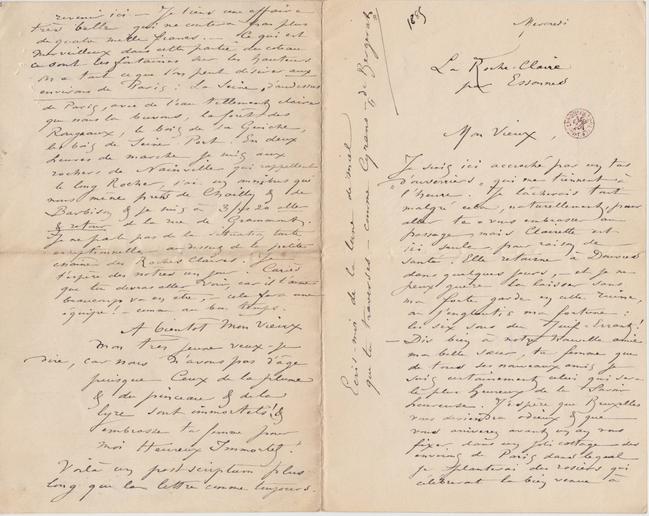 1885
Mercredi
La Roche-Claire
par Essonnes
Mon Vieux,
Je suis ici accroché par un tas
d'ouvriers, qui me tiennent à
l'heure. Je lâcherais tout
malgré cela, naturellement, pour
aller te & vous embrasser au
passage, mais Clairette est
ici seule pour raison de
santé. Elle retourne à
dans quelques jours, et je ne
peux guère la laisser sans
ma forte garde en cette ruine,
où j'engloutis ma fortune:
les six sous du Juif-Errant!
— Dis bien à notre nouvelle amie
ma belle sœur, ta femme que
de tous ses nouveaux amis je
suis certainement celui qui sera
le plus heureux de la savoir
heureuse. J'espère que Bruxelles
vous deviendra odieux & que
vous arriverez avant un an vous
fixer dans un joli cottage des
environs de Paris dans lequel
je planterai des rosiers qui
célébreront la bienvenue à
revenir ici — Je tiens une affaire
très belle qui ne coûtera pas plus
de quatre mille francs. — Ce qui est
merveilleux dans cette partie du coteau
ce sont les fontaines sur les hauteurs
On a tout ce que l'on peut désirer aux
environs de Paris: La Seine, au dessus
de Paris, avec de l'eau tellement claire
que nous la buvons, la forêt des
Rougeaux, le bois de la Guiche,
le bois de Seine-Port. En deux
heures de marche je suis aux
rochers de Nainville qui rappellent
le Long Rocher, j'ai un omnibus qui
nous mène près de Chailly & de
Barbison & je suis à 3 f. 20 aller
& retour de la rue de Grammont.
Je ne parle pas de la situation toute
exceptionnelle au dessus de la petite
des Roches Claires. Je
t'espère des nôtres un jour.
que tu devras aller voir, car il t'aime
beaucoup va en être, — cela fera une
équipe! — comme au bon temps.
A bientôt mon Vieux
mon très jeune veux-je
dire, car nous n'avons pas d'âge
puisque Ceux de la plume
& du pinceau & de la
lyre sont immortels! &
embrasse ta femme pour
moi Heureux Immortel!
Voilà un post-scriptum plus
long que la lettre comme toujours.
Ecris-moi de la lune de miel
que tu traverses — comme Cyrano de Bergerac